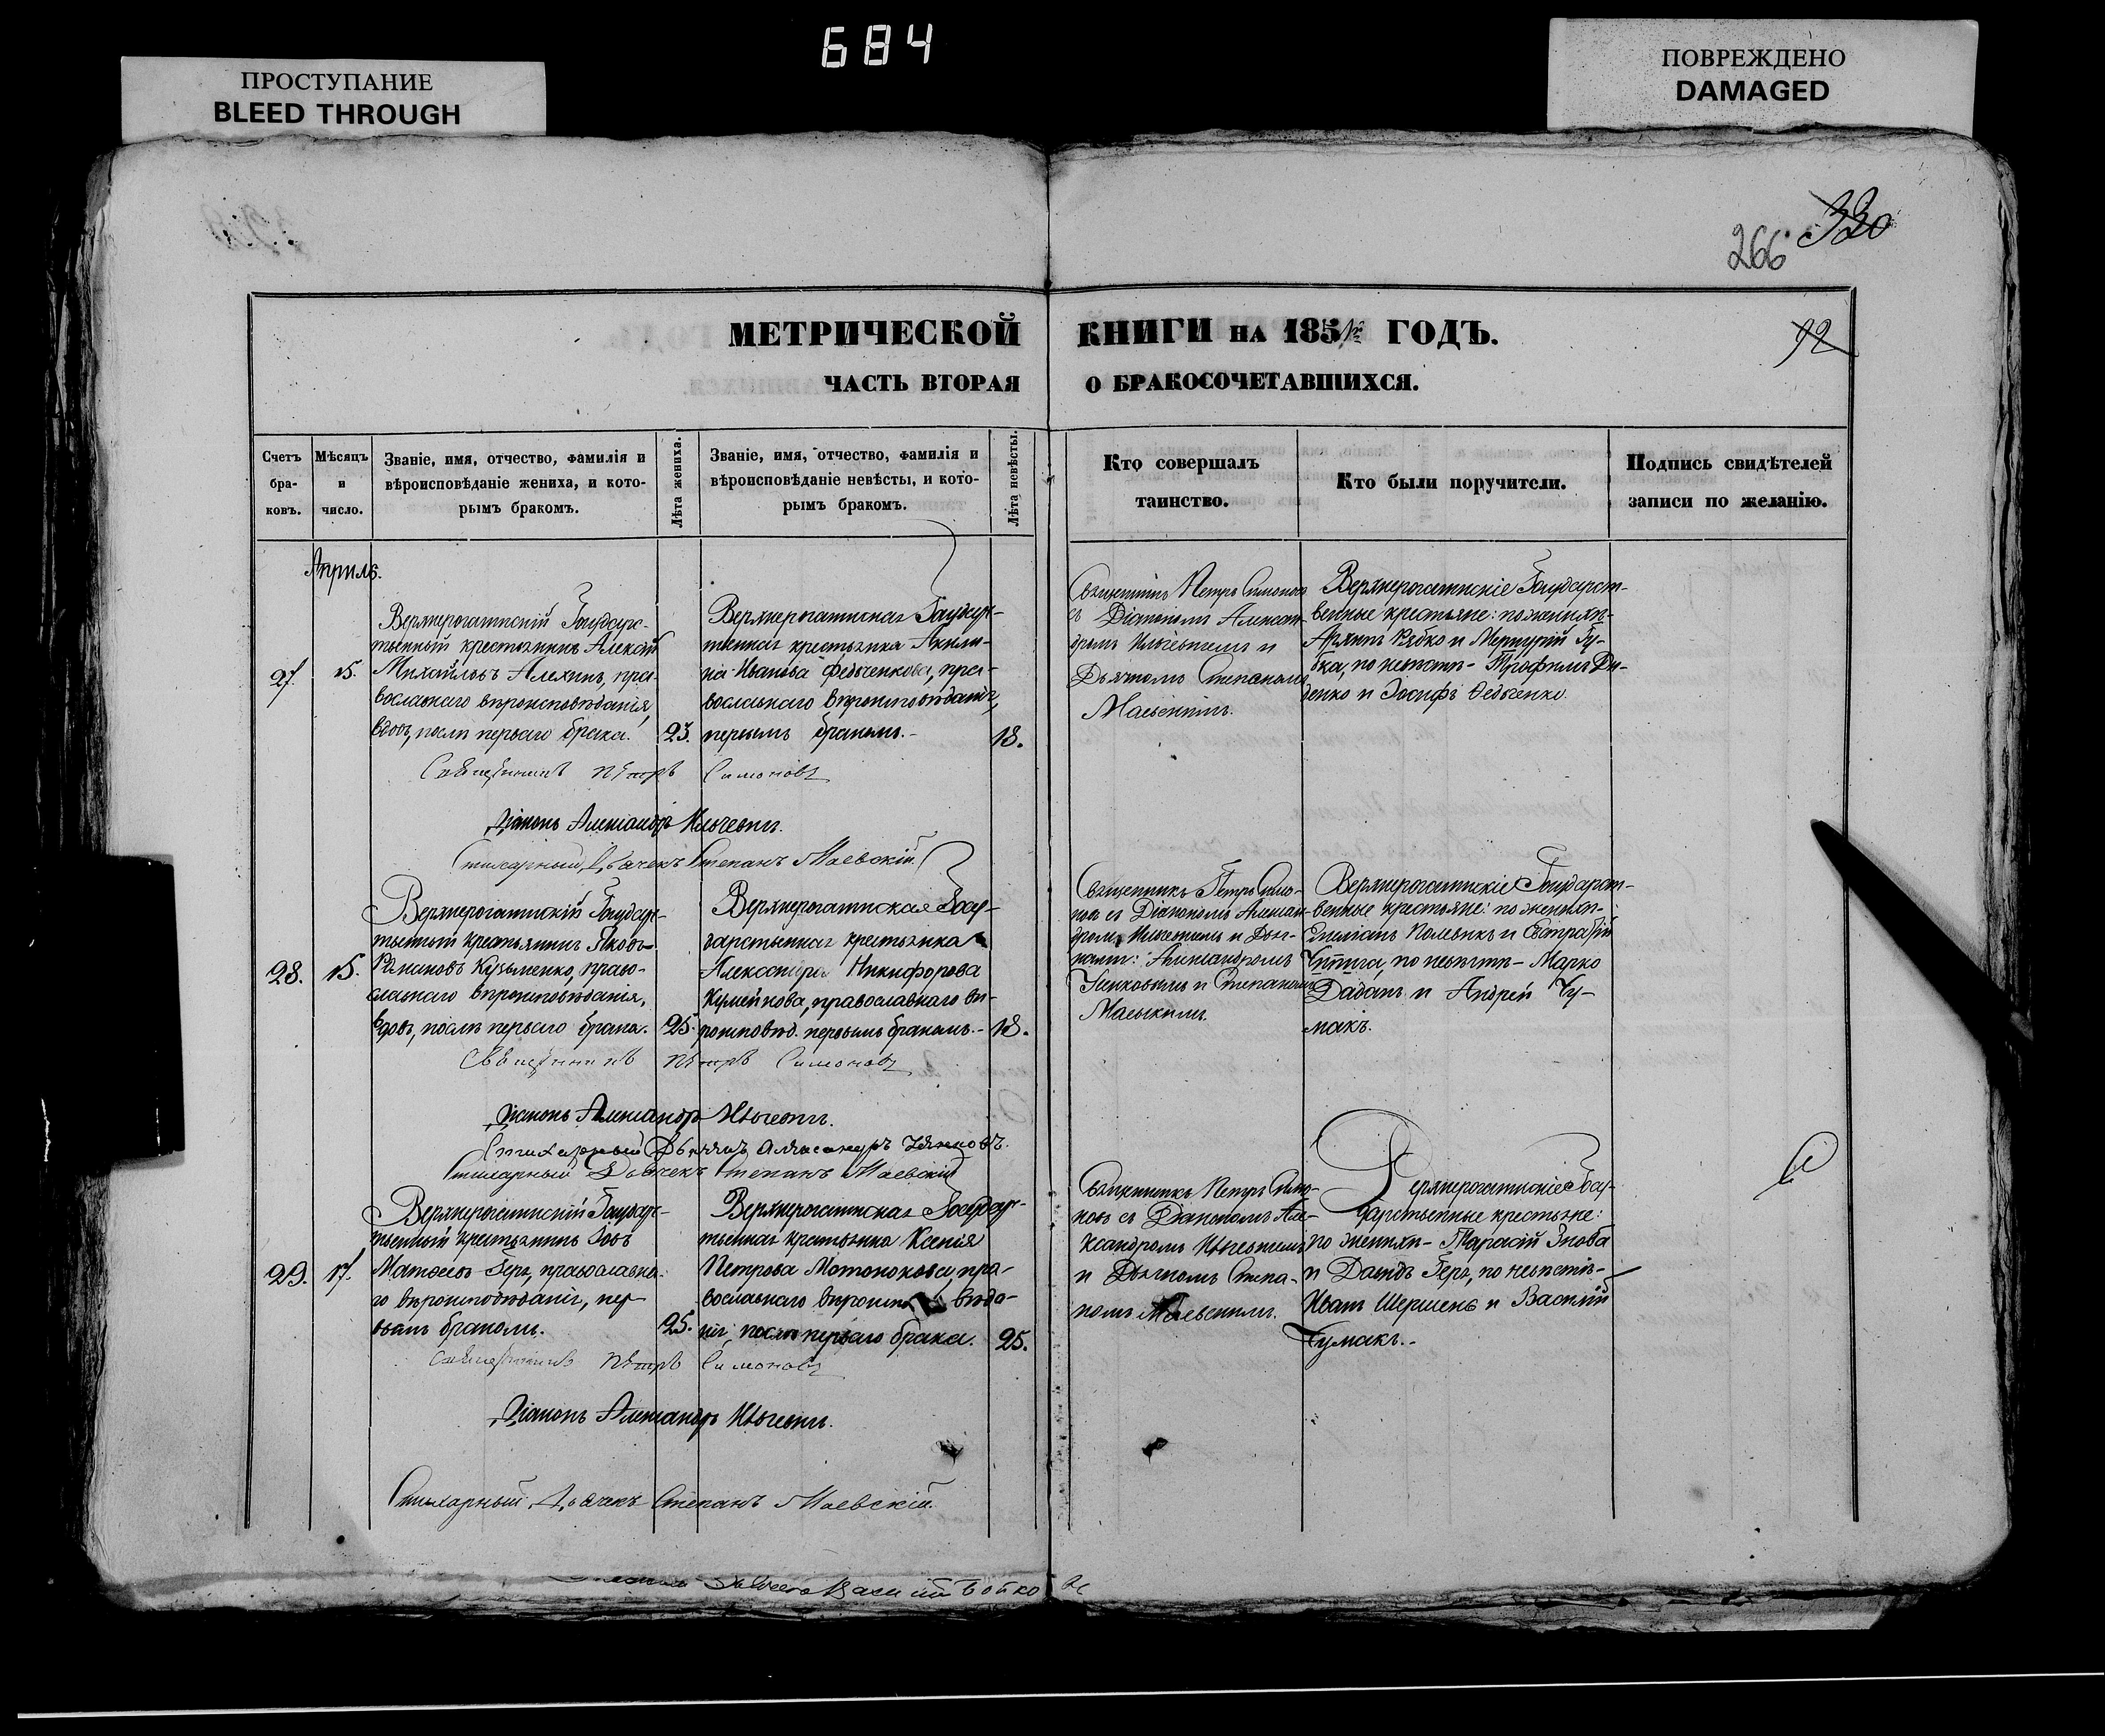 684
ПРОСТУПАНИЕ
BLEED THROUGH
ПОВРЕЖДЕНО
DAMAGED
266 320
92
МЕТРИЧЕСКОЙ КНИГИ НА 185 ГОДЪ.
ЧАСТЬ ВТОРАЯ О БРАКОСОЧЕТАВШИХСЯ.
Счетъ
бра-
ковъ.
Мѣсяцъ
и
число.
Званіе, имя, отчество, фамилія и
вѣроисповѣданіе жениха, и кото-
рымъ бракомъ.
Лѣта жениха.
Званіе, имя, отчество, фамилія и
вѣроисповѣданіе невѣсты, и кото-
рымъ бракомъ.
Лѣта невѣсты.
Кто совершалъ
таинство.
Кто были поручители.
Подпись свидѣтелей
записи по желанію.
Апрыль.
27.
15.
Верхнерогачикскій Государс-
твенный крестьянинъ Алексій
Михайловъ Алехинъ, пра-
вославнаго вѣроисповѣданія,
вдовъ, послѣ перваго брака.
23.
Верхнерогачикская Государс-
твенная крестьянка Акили-
на Иванова Федченкова, пра-
вославнаго вѣроисповѣданія,
первымъ бракомъ.-
18.
Священникъ Петръ Симоновъ
съ Діакономъ Алексан-
дромъ и
Дьячкомъ Степаномъ
Маевскимъ.
Верхнерогачикскіе Государст-
венные крестьяне: по женихѣ-
Архипъ Рябко и Меркурій Гу-
бка, по невѣстѣ - Трофимъ Ди-
денко и Іосифъ Федченко.
Священникъ Петръ Симоновъ
Діаконъ Александръ
Стихарный Дьячекъ Степанъ Маевскій
28.
15.
Верхнерогачикскій Государс-
твенный крестьянинъ Яковъ
Романовъ Кузьменко, право-
славнаго вѣроисповѣданія,
вдовъ, послѣ перваго брака.
25.
Верхнерогачикская Госу-
дарственная крестьянка
Александра Никифорова
православнаго вѣ-
роисповѣд. первымъ бракомъ.-
18.
Священникъ Петръ Симо-
новъ съ Діакономъ Алексан-
дромъ и Дьяч-
ками: Александромъ
и Степаномъ
Маевскимъ.
Верхнерогачикскіе Государст-
венные крестьяне: по женихѣ-
и
по невѣстѣ - Марко
и Андрей Чу-
макъ.
Священникъ Петръ Симоновъ
Діаконъ Александръ
Стихарный Дьячекъ Александръ
Стихарный Дьячекъ Степанъ Маевскій
29.
17.
Верхнерогачикскій Государс-
твенный крестьянинъ Іовъ
Матвеевъ Геръ, православна-
го вѣроисповѣданія, пер-
вымъ бракомъ.
25.
Верхнерогачикская Государс-
твенная крестьянка Ксенія
Петрова пра-
вославнаго вѣроисповѣда-
нія, послѣ перваго брака.
25.
Священникъ Петръ Симо-
новъ съ Діакономъ Але-
ксандромъ
и Дьячкомъ Степа-
номъ Маевскимъ.
Верхнерогачикскіе Госу-
дарственные крестьяне:
по женихѣ - Тарасій
и Давидъ Геръ, по невѣстѣ-
Иванъ Шершень и Василій
Чумакъ.-
Священникъ Петръ Симоновъ
Діаконъ Александръ
Стихарный Дьячекъ Степанъ Маевскій.
Василій Бойко